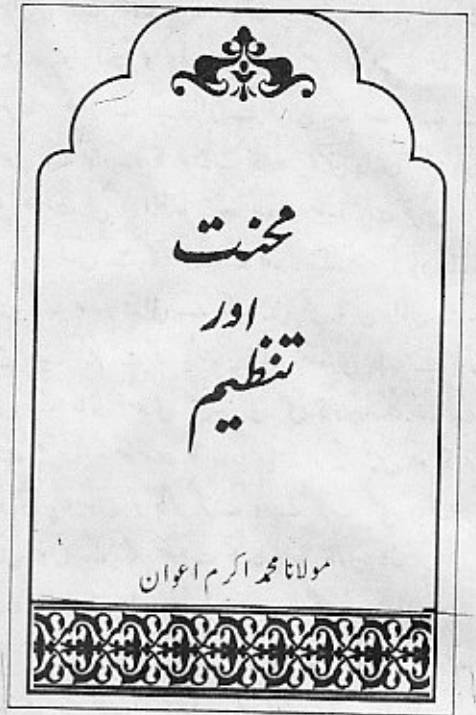 محنت
اور
تنظیم
مولانا محمد اکرم اعوان